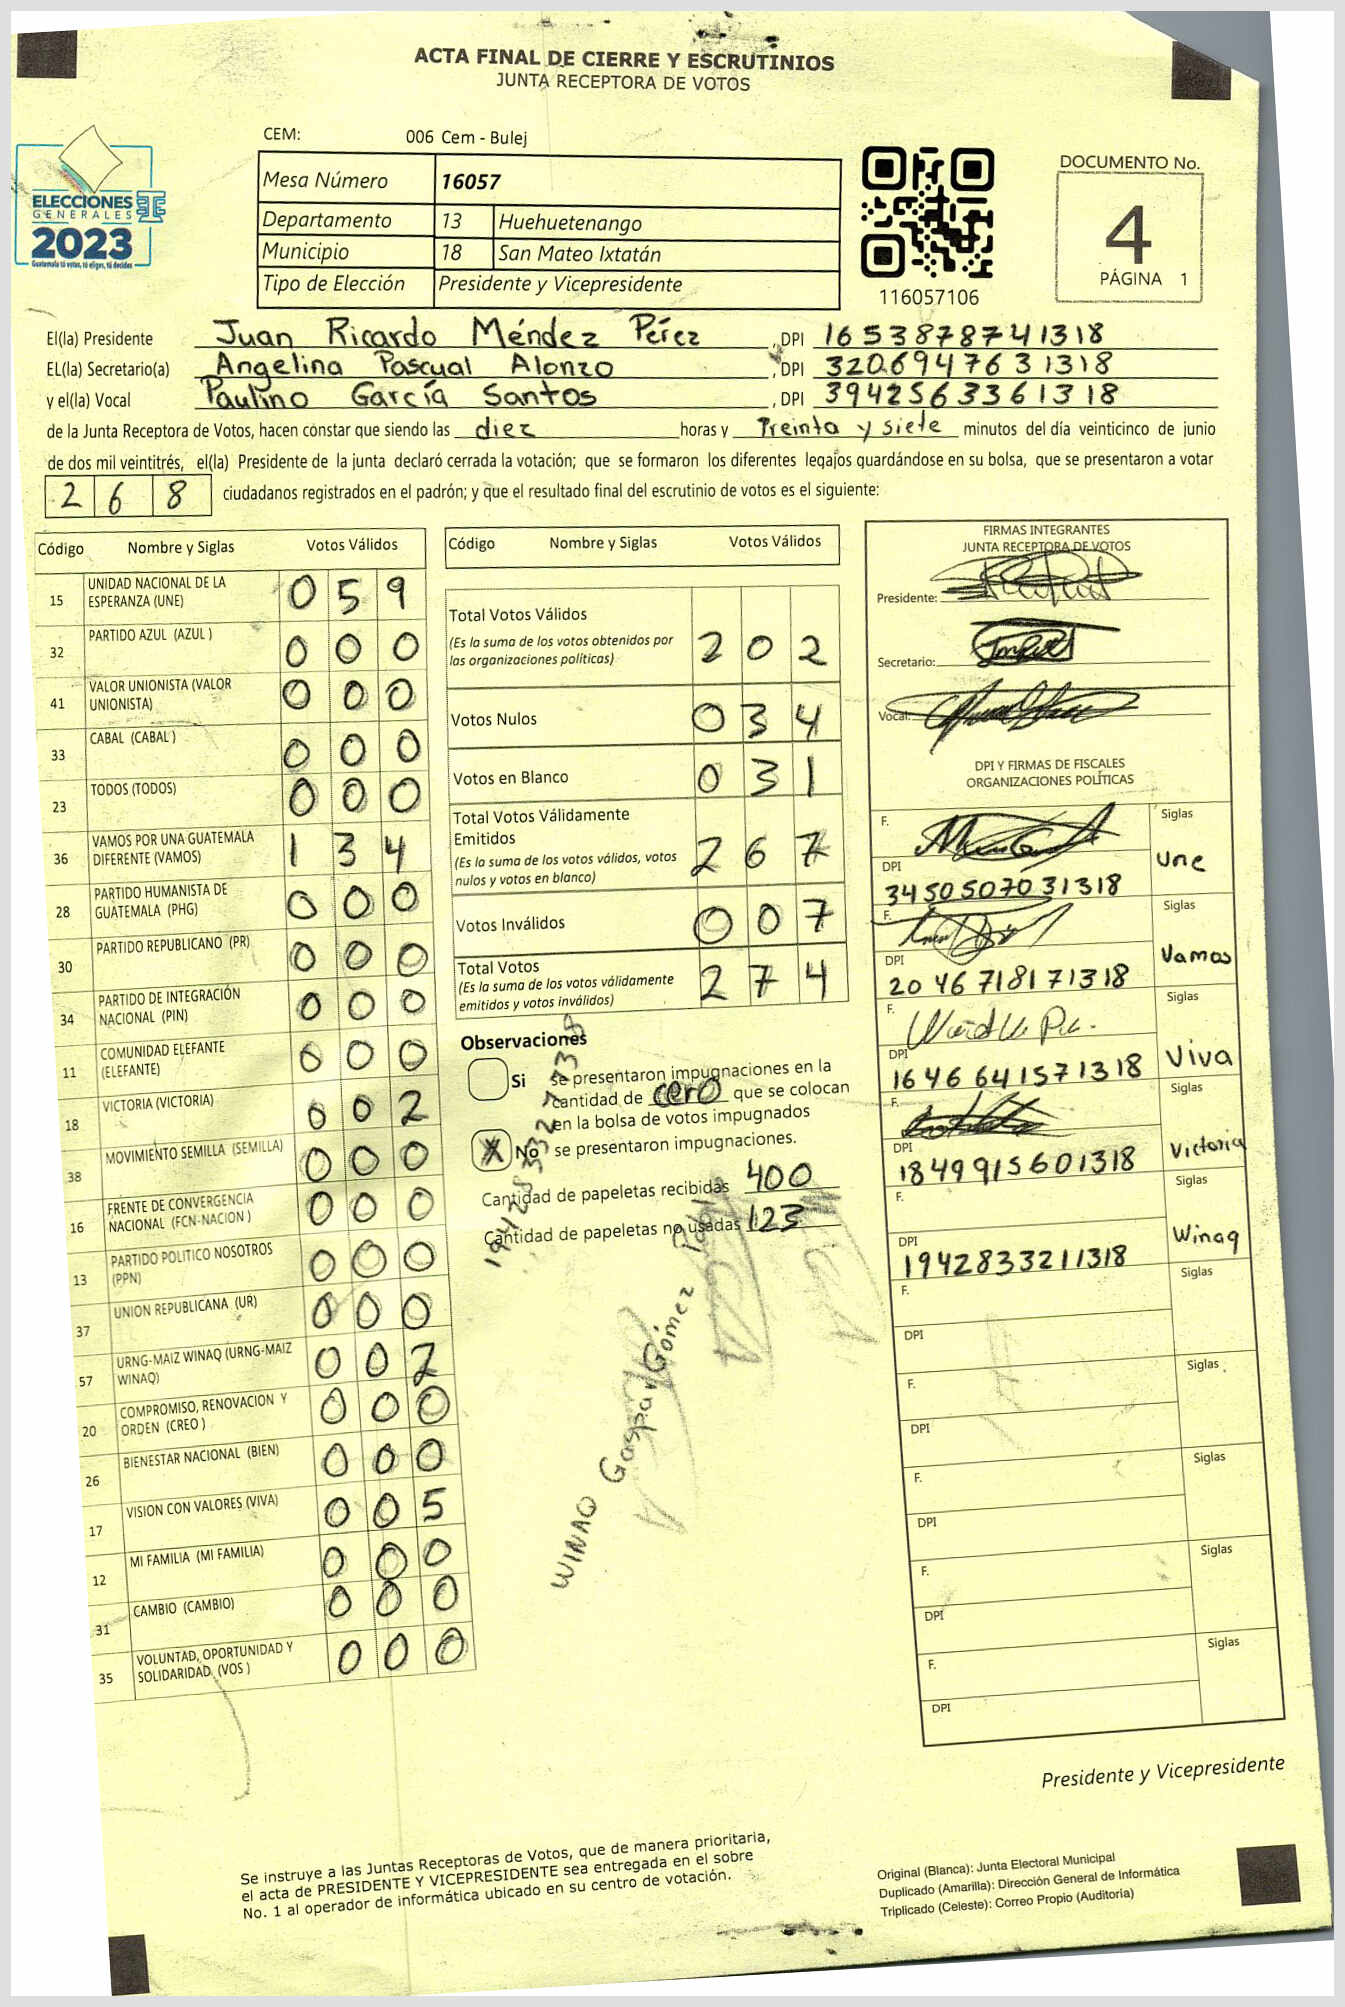 ACTA FINAL DE CIERRE Y ESCRUTINIOS
JUNTA RECEPTORA DE VOTOS
CEM: 006 Cem - Bulej
ELECCIONES
GENERALES
2023
Guatemala tú votas, tú eliges, tú decides
Mesa Número 16057
Departamento 13 Huehuetenango
Municipio 18 San Mateo Ixtatán
Tipo de Elección Presidente y Vicepresidente
116057106
DOCUMENTO No.
4
PÁGINA 1
El(la) Presidente Juan Ricardo Méndez Pérez , DPI 1653878741318
EL(la) Secretario(a) Angelina Pascual Alonzo , DPI 3206947631318
y el(la) Vocal Paulino García Santos , DPI 3942563361318
de la Junta Receptora de Votos, hacen constar que siendo las diez horas y Treinta y siete minutos del día veinticinco de junio
de dos mil veintitrés, el(la) Presidente de la junta declaró cerrada la votación; que se formaron los diferentes legajos guardándose en su bolsa, que se presentaron a votar
268 ciudadanos registrados en el padrón; y que el resultado final del escrutinio de votos es el siguiente:
Código Nombre y Siglas Votos Válidos
15 UNIDAD NACIONAL DE LA ESPERANZA (UNE) 059
32 PARTIDO AZUL (AZUL ) 000
41 VALOR UNIONISTA (VALOR UNIONISTA) 000
33 CABAL (CABAL ) 000
23 TODOS (TODOS) 000
36 VAMOS POR UNA GUATEMALA DIFERENTE (VAMOS) 134
28 PARTIDO HUMANISTA DE GUATEMALA (PHG) 000
30 PARTIDO REPUBLICANO (PR) 000
34 PARTIDO DE INTEGRACIÓN NACIONAL (PIN) 000
11 COMUNIDAD ELEFANTE (ELEFANTE) 000
18 VICTORIA (VICTORIA) 002
38 MOVIMIENTO SEMILLA (SEMILLA) 000
16 FRENTE DE CONVERGENCIA NACIONAL (FCN-NACION ) 000
13 PARTIDO POLITICO NOSOTROS (PPN) 000
37 UNION REPUBLICANA (UR) 000
57 URNG-MAIZ WINAQ (URNG-MAIZ WINAQ) 002
20 COMPROMISO, RENOVACION Y ORDEN (CREO ) 000
26 BIENESTAR NACIONAL (BIEN) 000
17 VISION CON VALORES (VIVA) 005
12 MI FAMILIA (MI FAMILIA) 000
31 CAMBIO (CAMBIO) 000
35 VOLUNTAD, OPORTUNIDAD Y SOLIDARIDAD (VOS ) 000
Código Nombre y Siglas Votos Válidos
Total Votos Válidos 202
(Es la suma de los votos obtenidos por
las organizaciones políticas)
Votos Nulos 034
Votos en Blanco 031
Total Votos Válidamente
Emitidos 267
(Es la suma de los votos válidos, votos
nulos y votos en blanco)
Votos Inválidos 007
Total Votos 274
(Es la suma de los votos válidamente
emitidos y votos inválidos)
Observaciones
Si se presentaron impugnaciones en la
cantidad de cero que se colocan
en la bolsa de votos impugnados
X No se presentaron impugnaciones.
Cantidad de papeletas recibidas 400
Cantidad de papeletas no usadas 123
WINAQ Gaspar Gómez
FIRMAS INTEGRANTES
JUNTA RECEPTORA DE VOTOS
Presidente:
Secretario:
Vocal:
DPI Y FIRMAS DE FISCALES
ORGANIZACIONES POLÍTICAS
F. Siglas
DPI Une
3450507031318
F. Siglas
DPI Vamos
2046718171318
F. Siglas
DPI Viva
1646641571318
F. Siglas
DPI Victoria
1849915601318
F. Siglas
DPI Winaq
1942833211318
F. Siglas
DPI
F. Siglas
DPI
F. Siglas
DPI
F. Siglas
DPI
F. Siglas
DPI
Presidente y Vicepresidente
Se instruye a las Juntas Receptoras de Votos, que de manera prioritaria,
el acta de PRESIDENTE Y VICEPRESIDENTE sea entregada en el sobre
No. 1 al operador de informática ubicado en su centro de votación.
Original (Blanca): Junta Electoral Municipal
Duplicado (Amarilla): Dirección General de Informática
Triplicado (Celeste): Correo Propio (Auditoria)